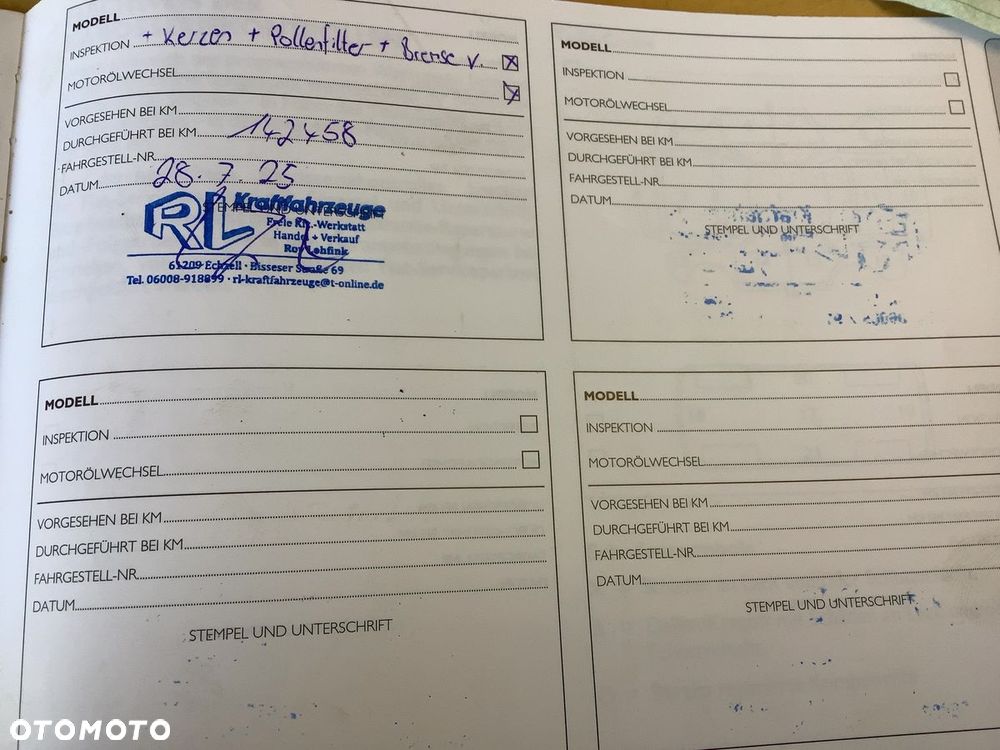 MODELL
INSPEKTION + Kerzen + Pollenfilter + Bremse v.
MOTORÖLWECHSEL
VORGESEHEN BEI KM
DURCHGEFÜHRT BEI KM 142458
FAHRGESTELL-NR.
DATUM 28.7.25
STEMPEL UND UNTERSCHRIFT
RL Kraftfahrzeuge
Freie Kfz.-Werkstatt
Handel + Verkauf
Roy Lohfink
61209 Echzell · Bisseser Straße 69
Tel. 06008-918899 · rl-kraftfahrzeuge@t-online.de
MODELL
INSPEKTION
MOTORÖLWECHSEL
VORGESEHEN BEI KM
DURCHGEFÜHRT BEI KM
FAHRGESTELL-NR.
DATUM
STEMPEL UND UNTERSCHRIFT
MODELL
INSPEKTION
MOTORÖLWECHSEL
VORGESEHEN BEI KM
DURCHGEFÜHRT BEI KM
FAHRGESTELL-NR.
DATUM
STEMPEL UND UNTERSCHRIFT
MODELL
INSPEKTION
MOTORÖLWECHSEL
VORGESEHEN BEI KM
DURCHGEFÜHRT BEI KM
FAHRGESTELL-NR.
DATUM
STEMPEL UND UNTERSCHRIFT
OTOMOTO